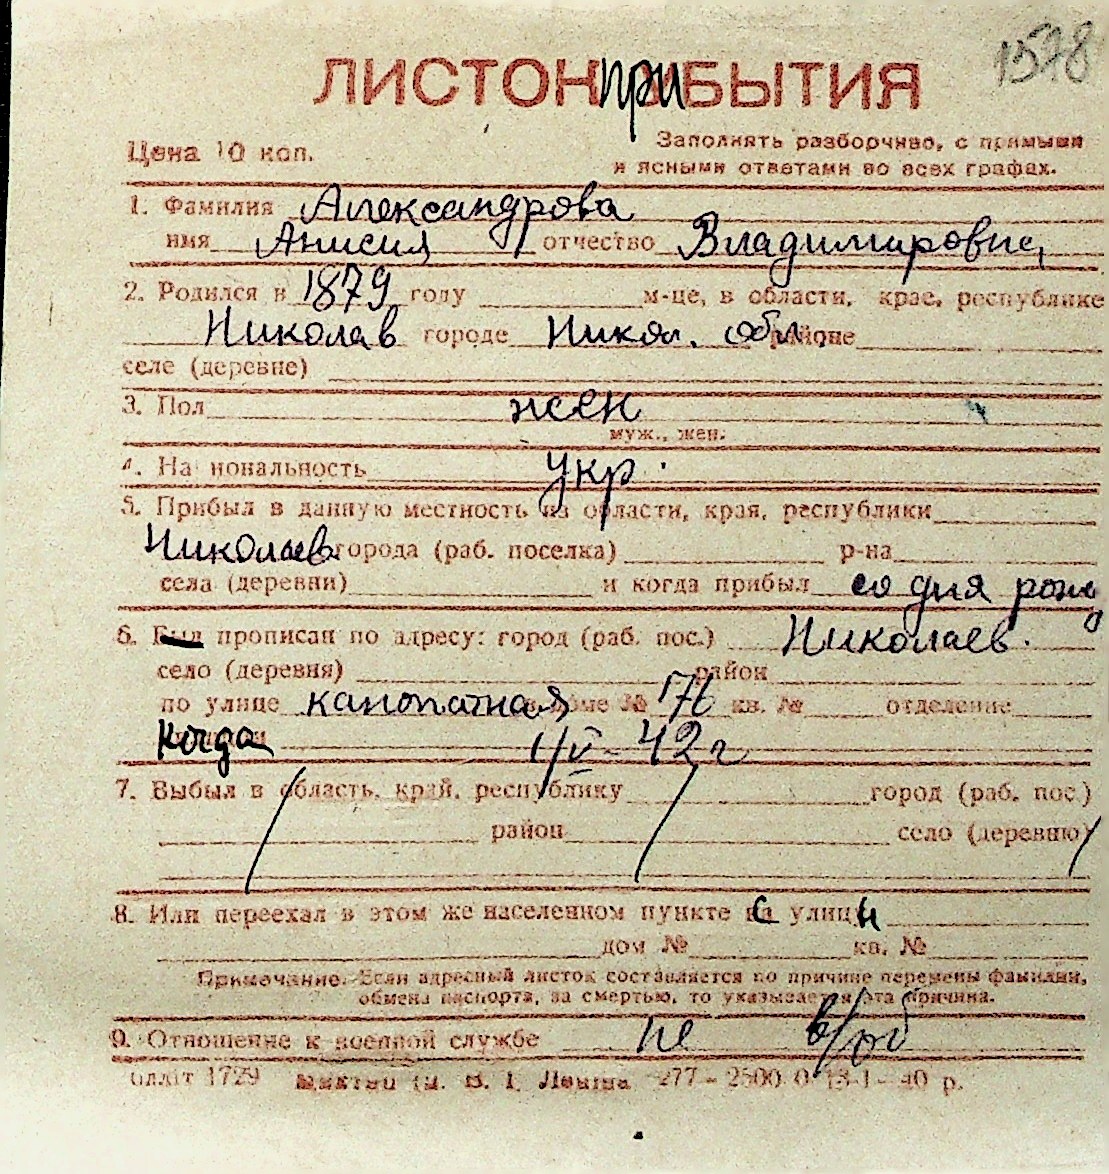 1578
ЛИСТОК ПРИБЫТИЯ
Цена 10 коп.
Заполнять разборчиво, с прямыми
и ясными ответами во всех графах.
1. Фамилия Александрова
имя Анисия отчество Владимировна
2. Родился в 1879 году м-це, в области, крае, республике
Николав городе Никол. обл. районе
селе (деревне)
3. Пол жен
муж., жен.
4. Национальность укр.
5. Прибыл в данную местность из области, края, республики
Николаев города (раб. поселка) р-на
села (деревни) и когда прибыл со дня рожд
6. Был прописан по адресу: город (раб. пос.) Николаев.
село (деревня) район
по улице канопатная в доме № 76 кв. № отделение
Когда 1/V-42 г
7. Выбыл в область, край, республику город (раб. пос.)
район село (деревню)
8. Или переехал в этом же населенном пункте с улицы
дом № кв. №
Примечание. Если адресный листок составляется по причине перемены фамилии,
обмена паспорта, за смертью, то указывается эта причина.
9. Отношение к военной службе не в/об
1729 Ленина 277-2500 0 13-I-40 р.